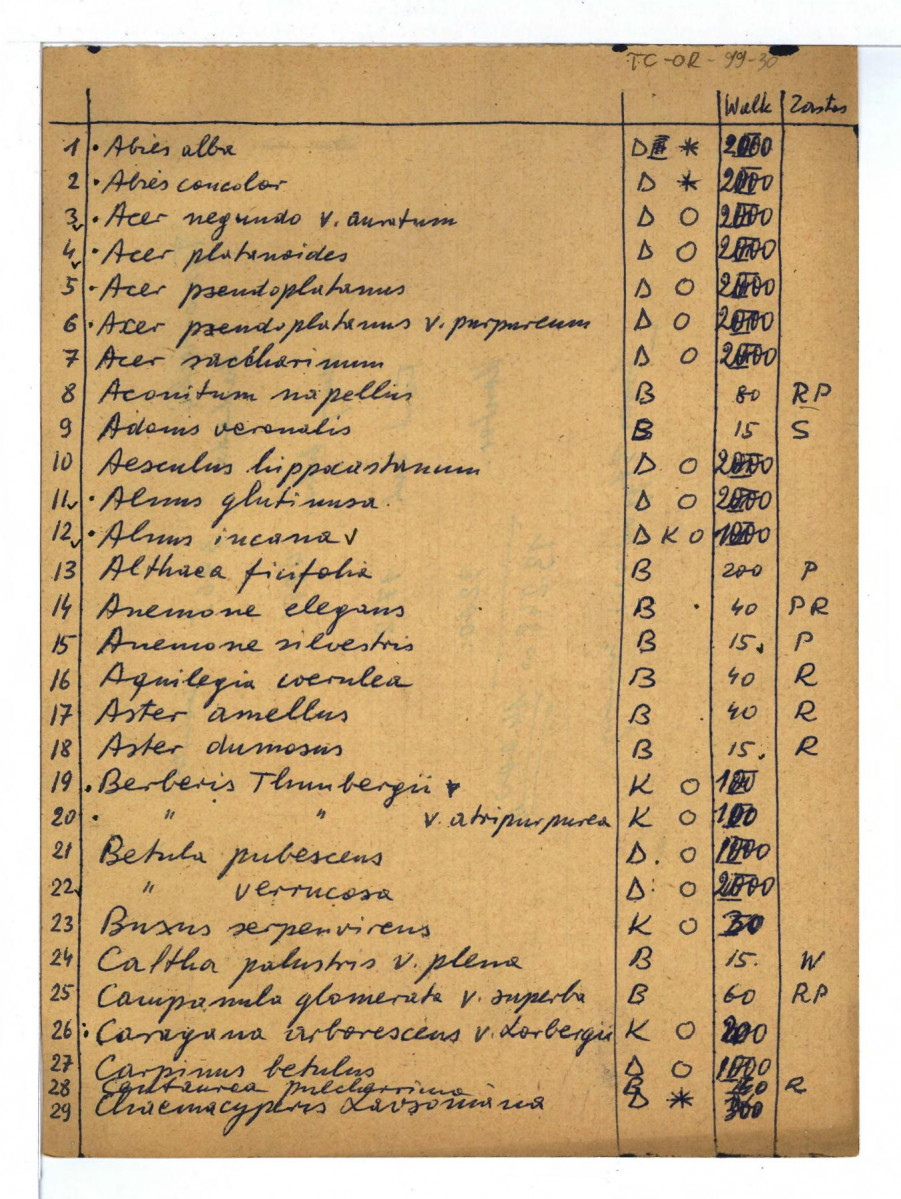 TC-OR-99-30
Wielk Zastos
1 • Abies alba D * 2000
2 • Abies concolor D * 2000
3 • Acer negundo v. auratum D O 2000
4 • Acer platanoides D O 2000
5 • Acer pseudoplatanus D O 2000
6 • Acer pseudoplatanus v. purpureum D O 2000
7 Acer saccharinum D O 2000
8 Aconitum napellus B 80 RP
9 Adonis vernalis B 15 S
10 Aesculus hippocastanum D O 2000
11 • Alnus glutinosa D O 2000
12 • Alnus incana v D K O 1000
13 Althaea ficifolia B 200 P
14 Anemone elegans B 40 PR
15 Anemone silvestris B 15. P
16 Aquilegia coerulea B 40 R
17 Aster amellus B 40 R
18 Aster dumosus B 15. R
19 • Berberis Thunbergii K O
20 • " " v. atripurpurea K O 100
21 Betula pubescens D. O 1000
22 " verrucosa D O 2000
23 Buxus serpenvirens K O
24 Caltha palustris v. plena B 15. W
25 Campanula glomerata v. superba B 60 RP
26 • Caragana arborescens v. Lorbergii K O
27 Carpinus betulus D O 1000
28 Centaurea pulcherrima B R
29 Chaemacyperis Lavsoniana D * 300